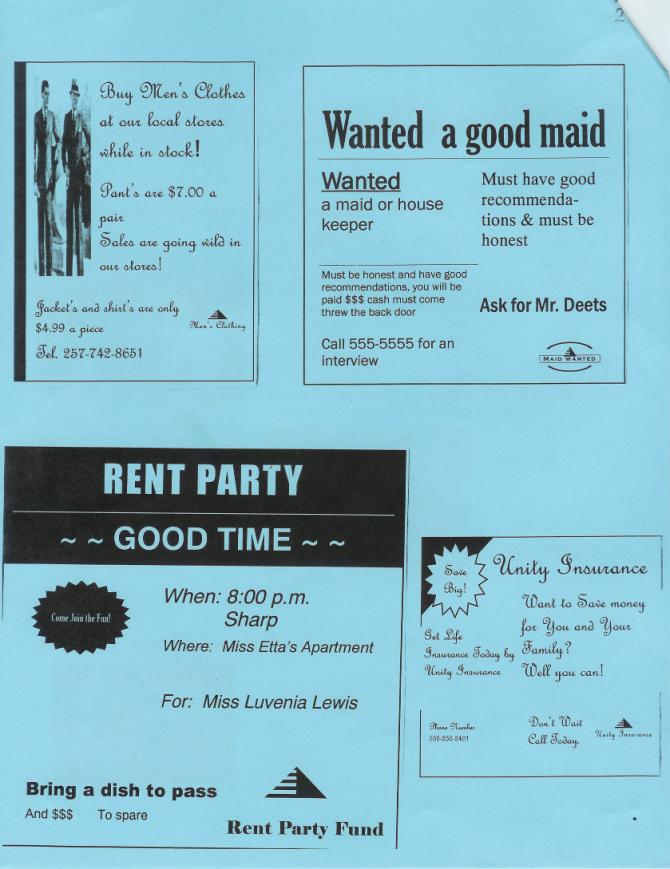 Buy Men's Clothes
at our local stores
while in stock!
Pant's are $7.00 a
pair
Sales are going wild in
our stores!
Jacket's and shirt's are only
$4.99 a piece
Men's Clothing
Tel. 257-742-8651
Wanted a good maid
Wanted
a maid or house
keeper
Must have good
recommenda-
tions & must be
honest
Must be honest and have good
recommendations, you will be
paid $$$ cash must come
threw the back door
Ask for Mr. Deets
Call 555-5555 for an
interview
MAID WANTED
RENT PARTY
~ ~ GOOD TIME ~ ~
Come Join the Fun!
When: 8:00 p.m.
Sharp
Where: Miss Etta's Apartment
For: Miss Luvenia Lewis
Bring a dish to pass
And $$$ To spare
Rent Party Fund
Save
Big!
Unity Insurance
Want to Save money
for You and Your
Family?
Well you can!
Get Life
Insurance Today by
Unity Insurance
Phone Number
Don't Wait
Call Today.
Unity Insurance